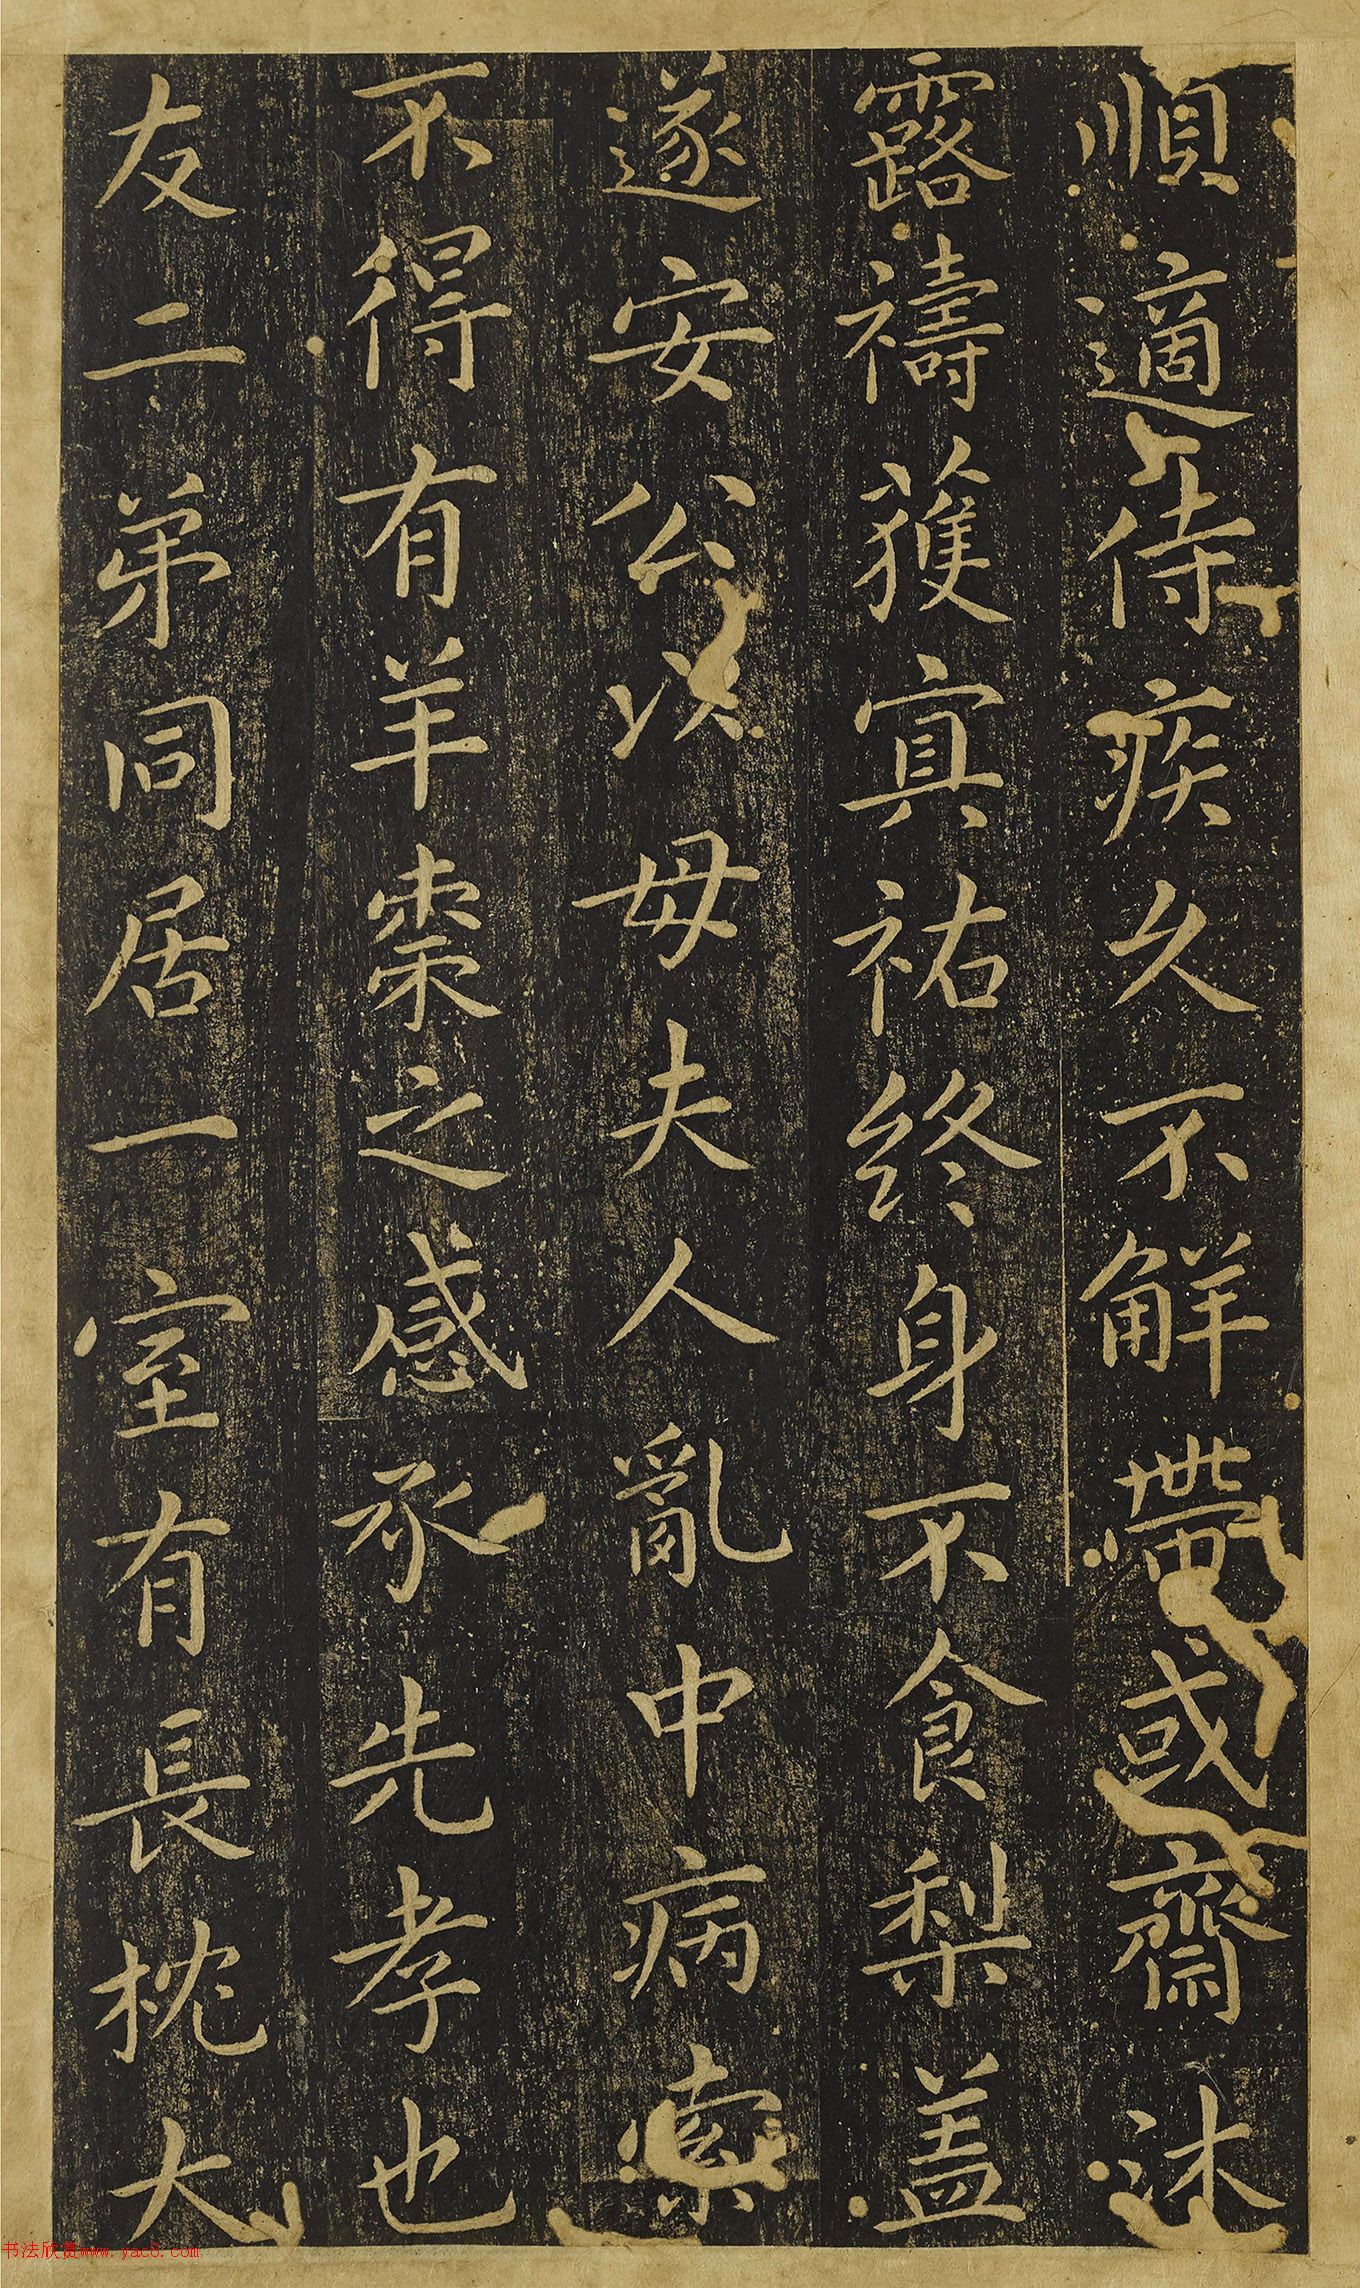 順適侍疾久不解帶或齋沐
露禱獲冥祐終身不食梨蓋
遂安公以母夫人亂中病索
不得有羊棗之感承先孝也
友二弟同居一室有長枕大
书法欣赏www.yac8.com